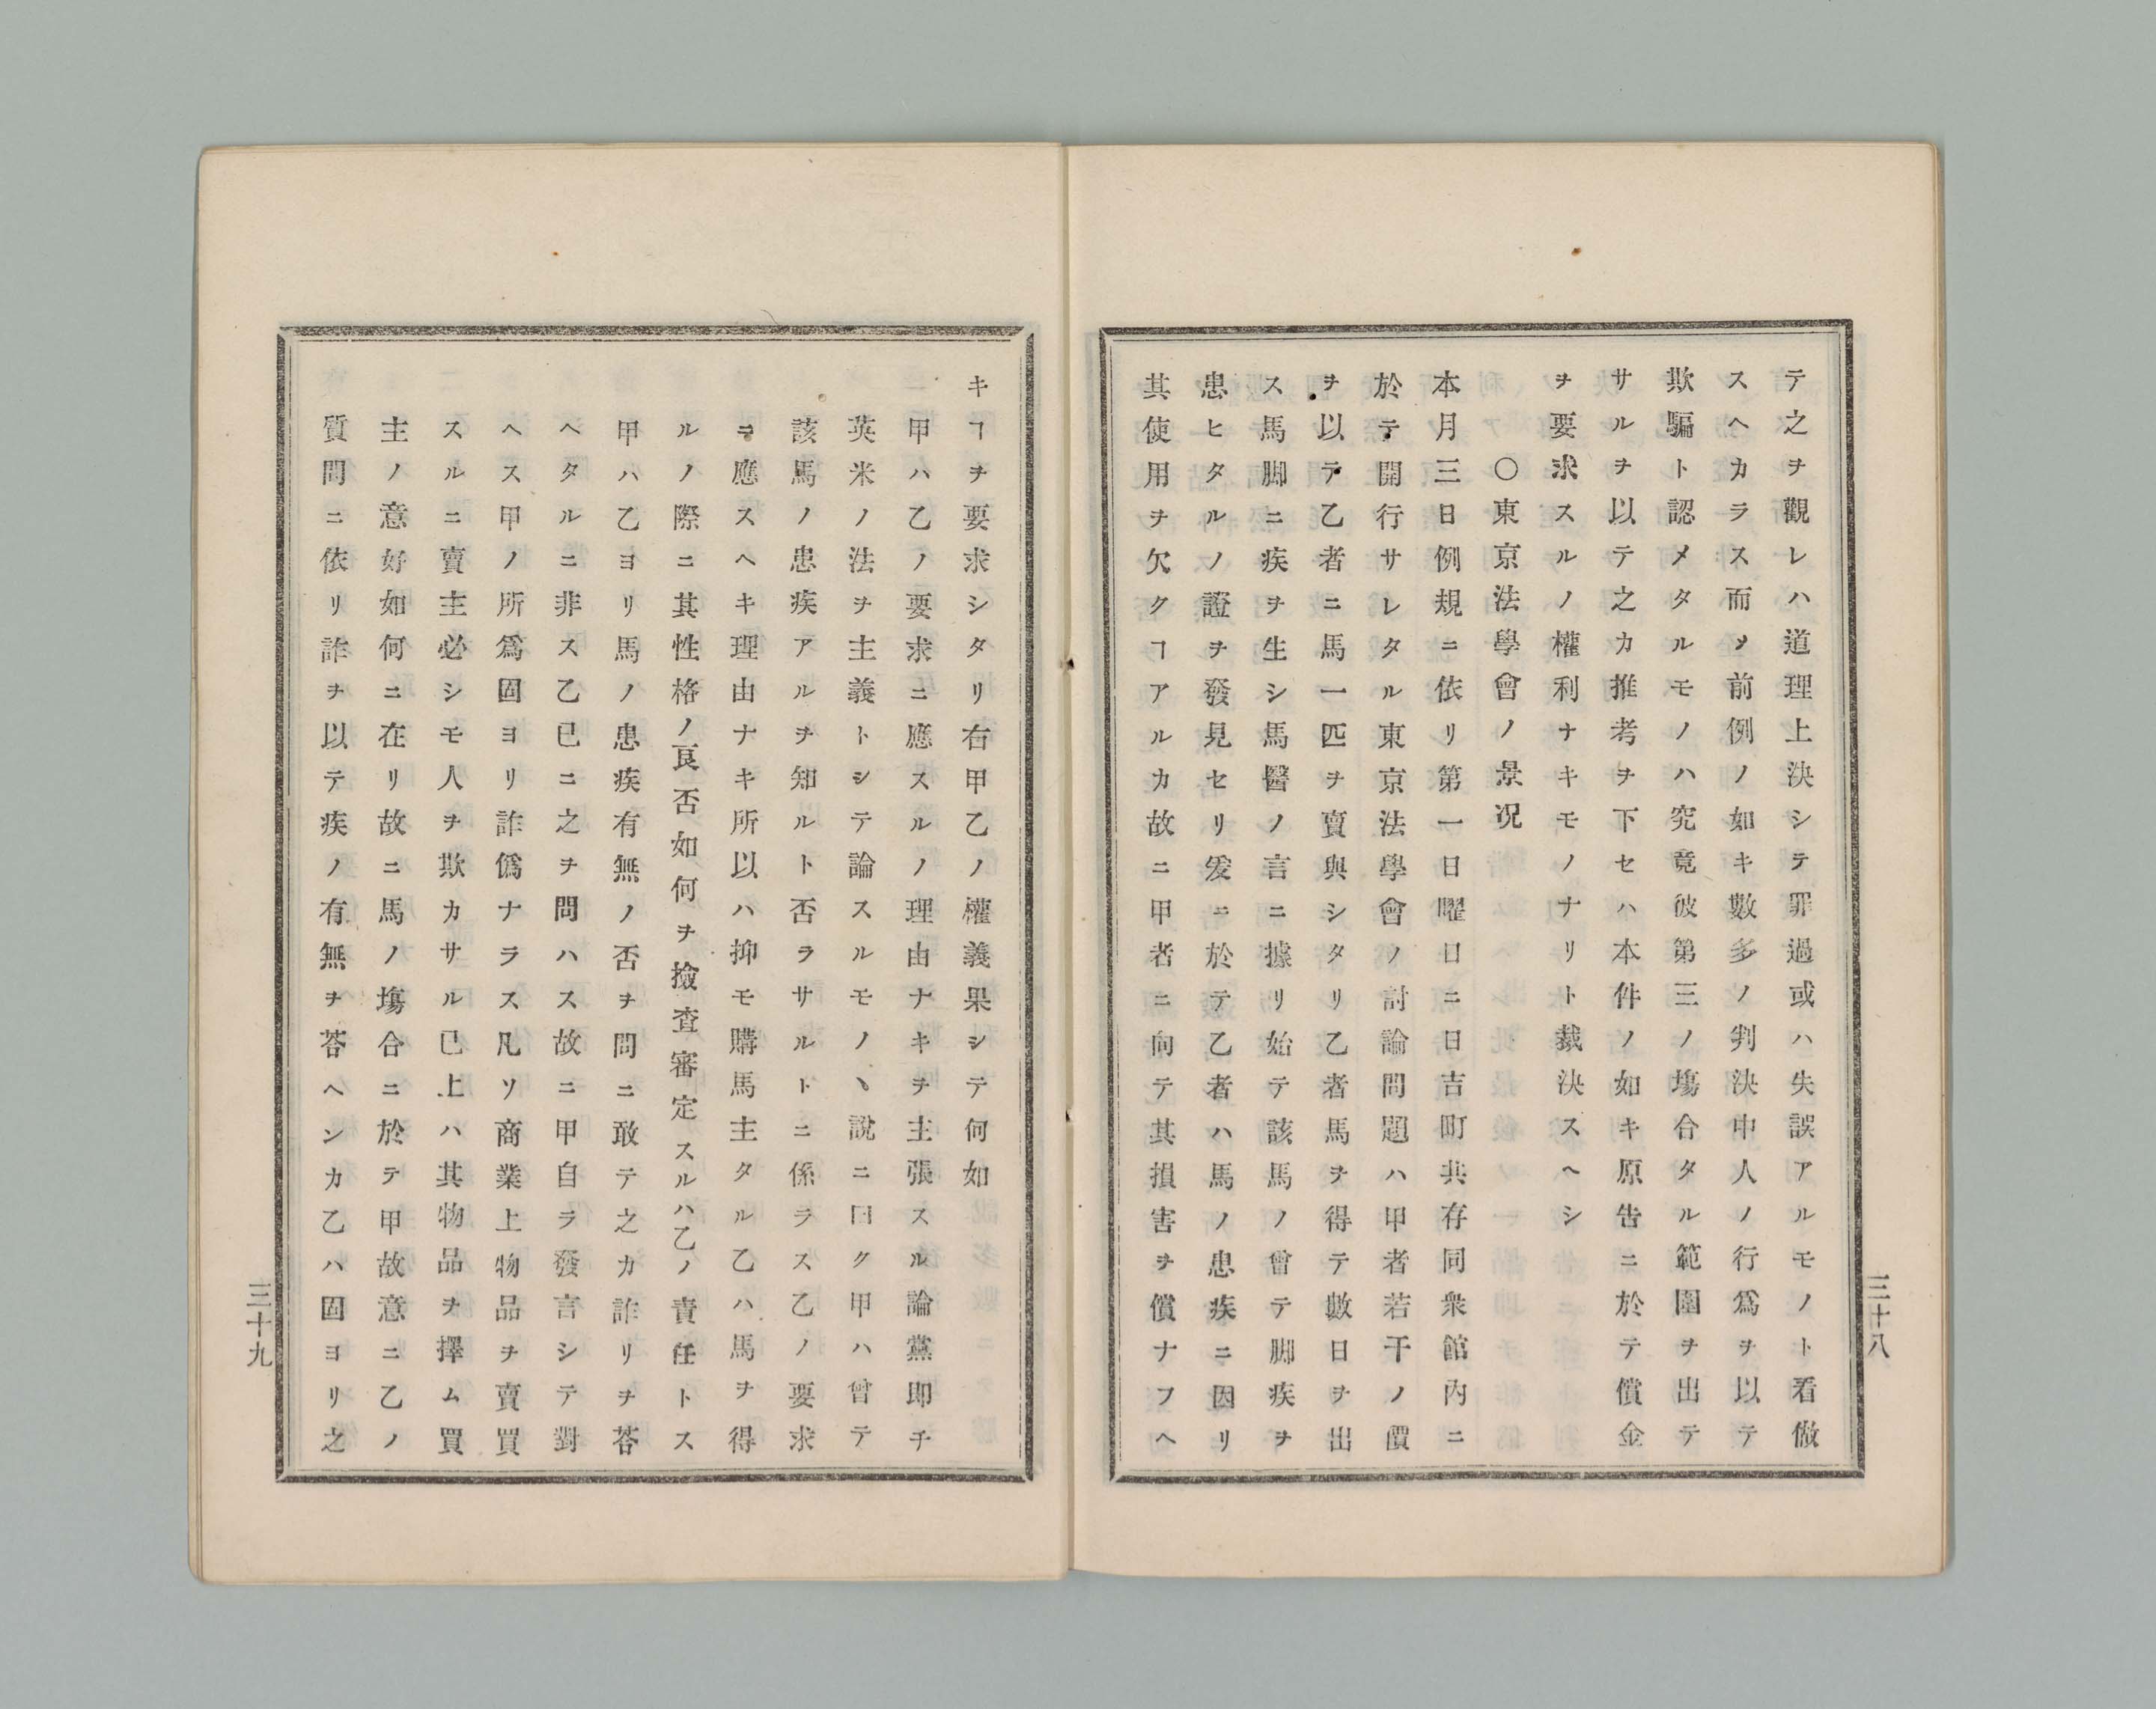 テ之ヲ觀レハ道理上決シテ罪過或ハ失誤アルモノト看做
スヘカラス而メ前例ノ如キ數多ノ判決中人ノ行爲ヲ以テ
欺騙ト認メタルモノハ究竟彼第三ノ塲合タル範圍ヲ出テ
サルヲ以テ之カ推考ヲ下セハ本件ノ如キ原告ニ於テ償金
ヲ要求スルノ權利ナキモノナリト裁決スヘシ
○東京法學會ノ景况
本月三日例規ニ依リ第一日曜日ニ日吉町共存同衆館內ニ
於テ開行サレタル東京法學會ノ討論問題ハ甲者若干ノ價
ヲ以テ乙者ニ馬一匹ヲ賣與シタリ乙者馬ヲ得テ數日ヲ出
ス馬脚ニ疾ヲ生シ馬醫ノ言ニ據リ始テ該馬ノ曾テ脚疾ヲ
患ヒタルノ證ヲ發見セリ爰ニ於テ乙者ハ馬ノ患疾ニ因リ
其使用ヲ欠クヿアルカ故ニ甲者ニ向テ其損害ヲ償ナフヘ
三十八
キヿヲ要求シタリ右甲乙ノ權義果シテ何如
甲ハ乙ノ要求ニ應スルノ理由ナキヲ主張スル論黨即チ
英米ノ法ヲ主義トシテ論スルモノヽ說ニ曰ク甲ハ曾テ
該馬ノ患疾アルヲ知ルト否ラサルトニ係ラス乙ノ要求
ニ應スヘキ理由ナキ所以ハ抑モ購馬主タル乙ハ馬ヲ得
ルノ際ニ其性格ノ良否如何ヲ撿査審定スルハ乙ノ責任トス
甲ハ乙ヨリ馬ノ患疾有無ノ否ヲ問ニ敢テ之カ詐リヲ荅
ヘタルニ非ス乙已ニ之ヲ問ハス故ニ甲自ラ發言シテ對
ヘス甲ノ所爲固ヨリ詐僞ナラス凡ソ商業上物品ヲ賣買
スルニ賣主必シモ人ヲ欺カサル已上ハ其物品ヲ擇ム買
主ノ意好如何ニ在リ故ニ馬ノ塲合ニ於テ甲故意ニ乙ノ
質問ニ依リ詐ヲ以テ疾ノ有無ヲ荅ヘシカ乙ハ固ヨリ之
三十九